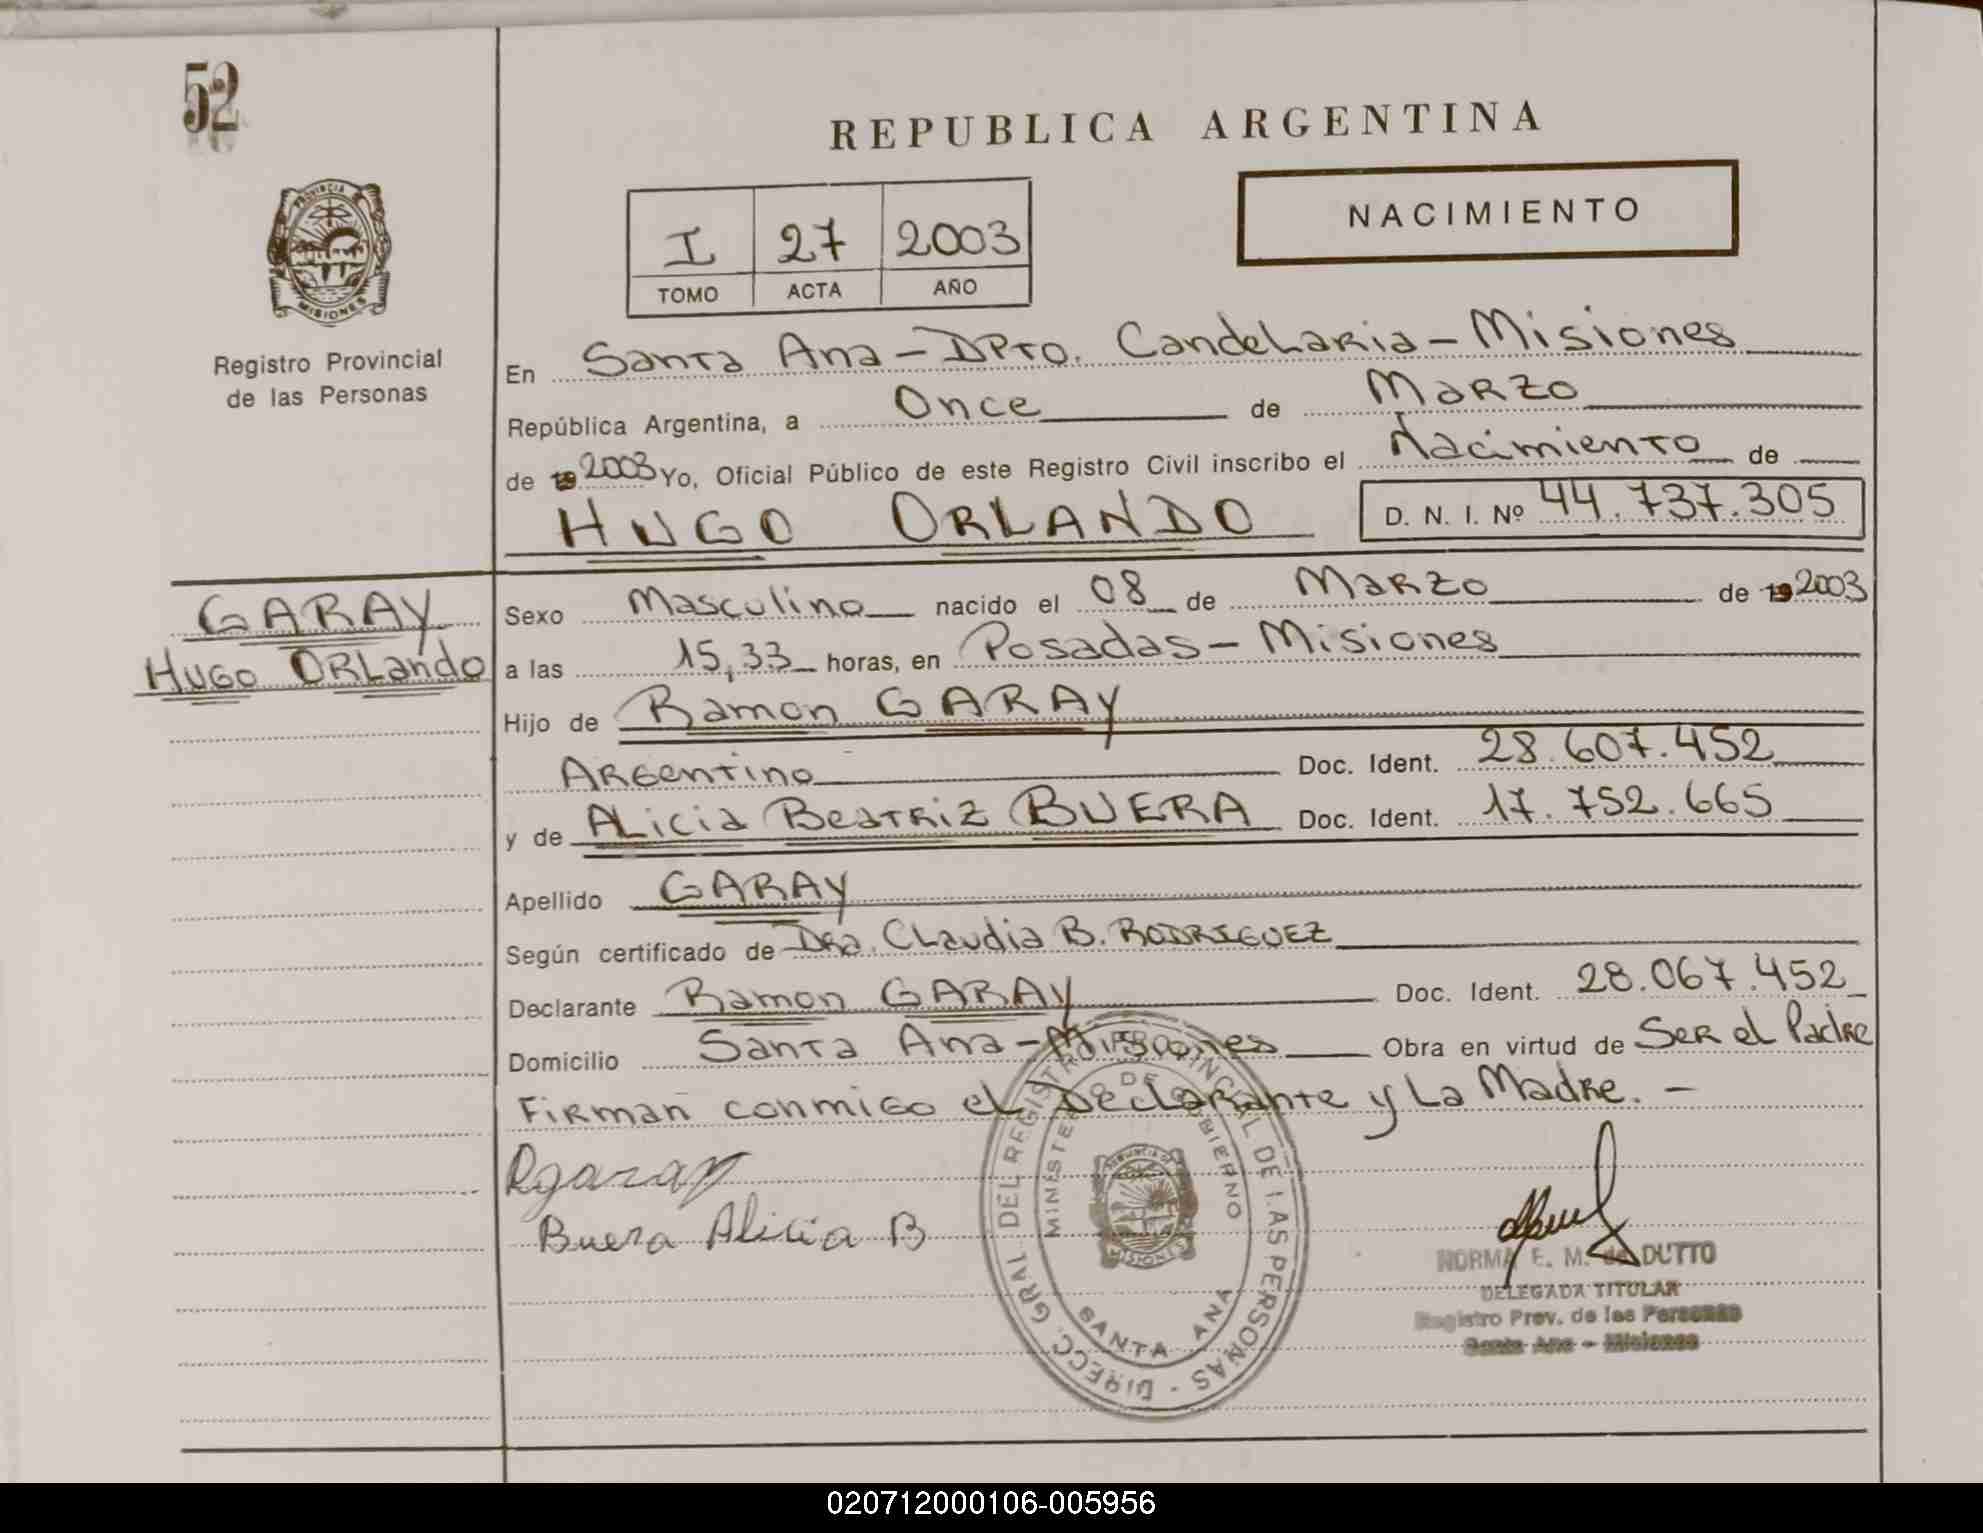 52
REPUBLICA ARGENTINA
NACIMIENTO
I 27 2003
TOMO ACTA AÑO
PROVINCIA
MISIONES
Registro Provincial
de las Personas
En Santa Ana - DPTO. Candelaria - Misiones
República Argentina, a Once de Marzo
de 19 2003 Yo, Oficial Público de este Registro Civil inscribo el Nacimiento de
HUGO ORLANDO D. N. I. Nº 44.737.305
GARAY
Hugo Orlando
Sexo Masculino nacido el 08 de Marzo de 19 2003
a las 15,33 horas, en Posadas - Misiones
Hijo de Ramon GARAY
Argentino Doc. Ident. 28.607.452
y de Alicia Beatriz BUERA Doc. Ident. 17.752.665
Apellido GARAY
Según certificado de Dra. Claudia B. RODRIGUEZ
Declarante Ramon GARAY Doc. Ident. 28.067.452
Domicilio Santa Ana - Misiones Obra en virtud de Ser el Padre
Firman conmigo el Declarante y La Madre. -
Rgaray
Buera Alicia B
DIRECC. GRAL DEL REGISTRO PROVINCIAL DE LAS PERSONAS
MINISTERIO DE GOBIERNO
PROVINCIA DE
MISIONES
SANTA ANA
NORMA E. M. de DUTTO
DELEGADA TITULAR
Registro Prov. de las Personas
Santa Ana - Misiones
020712000106-005956